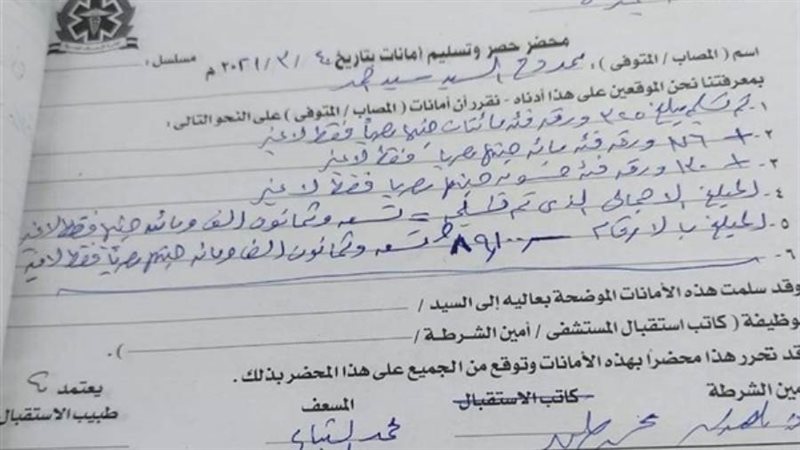 محضر حصر وتسليم أمانات بتاريخ ٤٠ / ٣ / ٢٠٢١ م مسلسل :
اسم ( المصاب / المتوفى ) : ممدوح السيد سيد احمد
بمعرفتنا نحن الموقعين على هذا أدناه - نقرر أن أمانات ( المصاب / المتوفى ) على النحو التالى :
١- تم تسليم مبلغ ٣٢٥ ورقه فئه مائتان جنيها مصريا فقط لاغير
٢- + ١٧٦ ورقه فئه مائه جنيها مصريا فقط لاغير
٣- + ١٣٠ ورقه فئه خمسونه جنيها مصريا فقط لاغير
٤- المبلغ الاجمالى الذى تم = تسعه وثمانون الف ومائه جنيها فقط لاغير
٥- المبلغ بالارقام ٨٩١٠٠ تسعه وثمانون الف ومائه جنيها مصريا فقط لاغير
٦-
وقد سلمت هذه الأمانات الموضحة بعاليه إلى السيد /
بوظيفة ( كاتب استقبال المستشفى / أمين الشرطة / ).
قد تحرر هذا محضراً بهذه الأمانات وتوقع من الجميع على هذا المحضر بذلك .
مين الشرطة كاتب الاستقبال المسعف يعتمد
طبيب الاستقبال
محمد